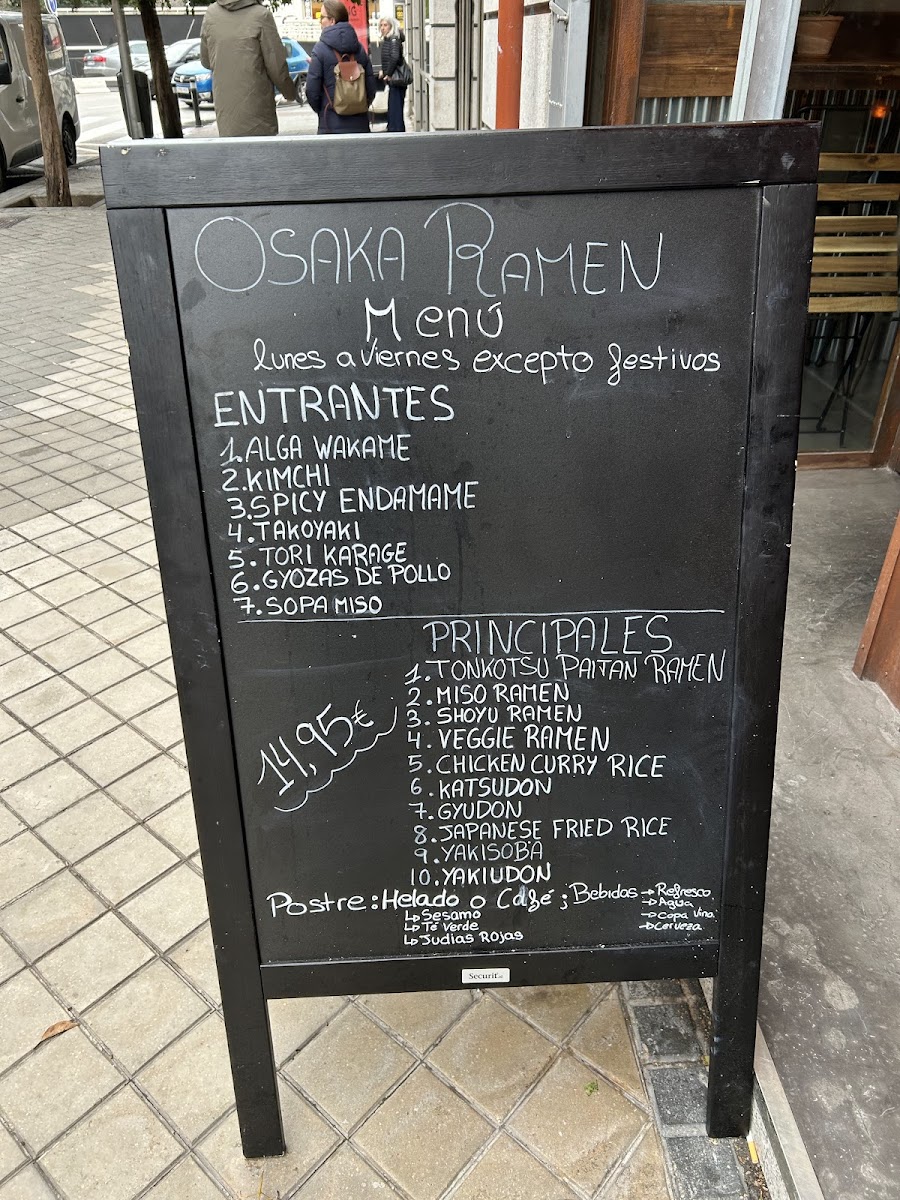 OSAKA RAMEN
Menú
lunes a viernes excepto festivos
ENTRANTES
1. ALGA WAKAME
2. KIMCHI
3. SPICY ENDAMAME
4. TAKOYAKI
5. TORI KARAGE
6. GYOZAS DE POLLO
7. SOPA MISO
PRINCIPALES
1. TONKOTSU PAITAN RAMEN
2. MISO RAMEN
3. SHOYU RAMEN
4. VEGGIE RAMEN
5. CHICKEN CURRY RICE
6. KATSUDON
7. GYUDON
8. JAPANESE FRIED RICE
9. YAKISOBA
10. YAKIUDON
14,95€
Postre: Helado o Café; Bebidas → Refresco
↳ Sesamo
↳ Té Verde
↳ Judias Rojas
→ Agua
→ Copa Vino
→ Cerveza
Securit